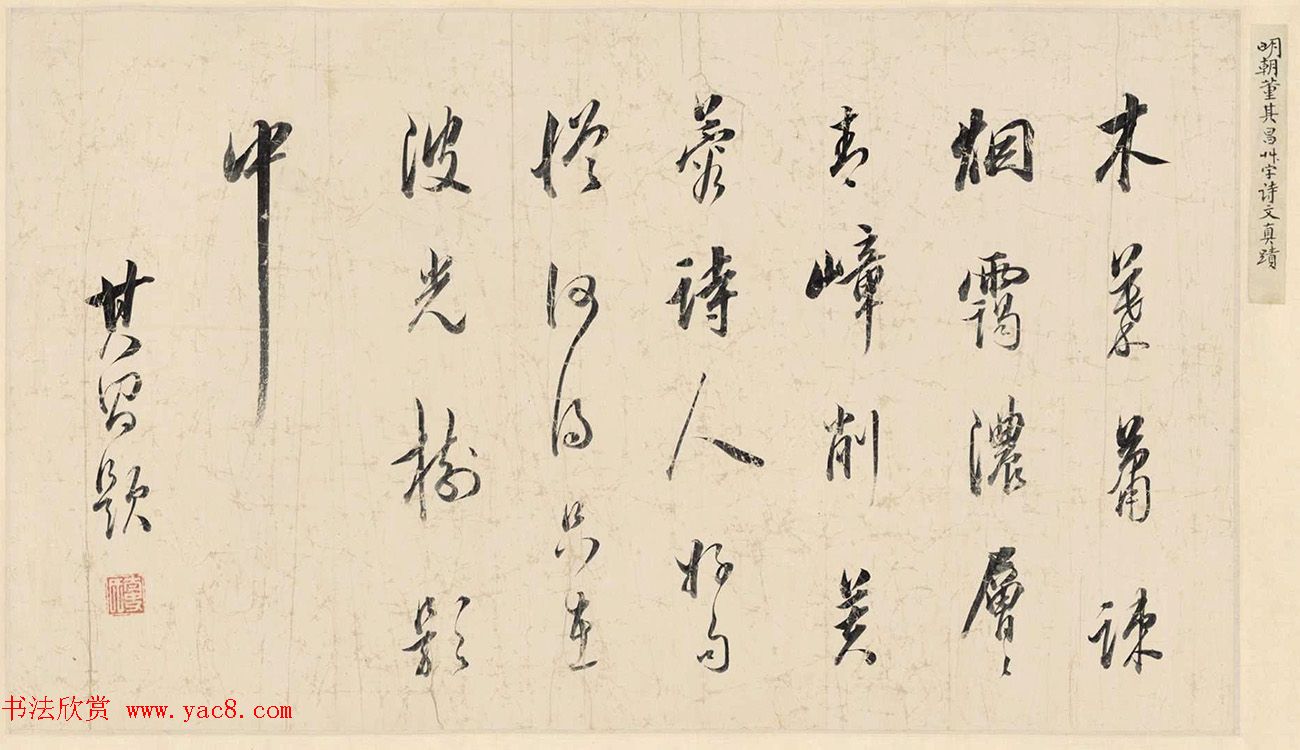 明朝董其昌艸字诗文真蹟
木葉蕭疎
烟靄濃層〻
青嶂削芙
蓉詩人好句
從何得只在
波光樹影
中
其昌題
书法欣赏 www.yac8.com